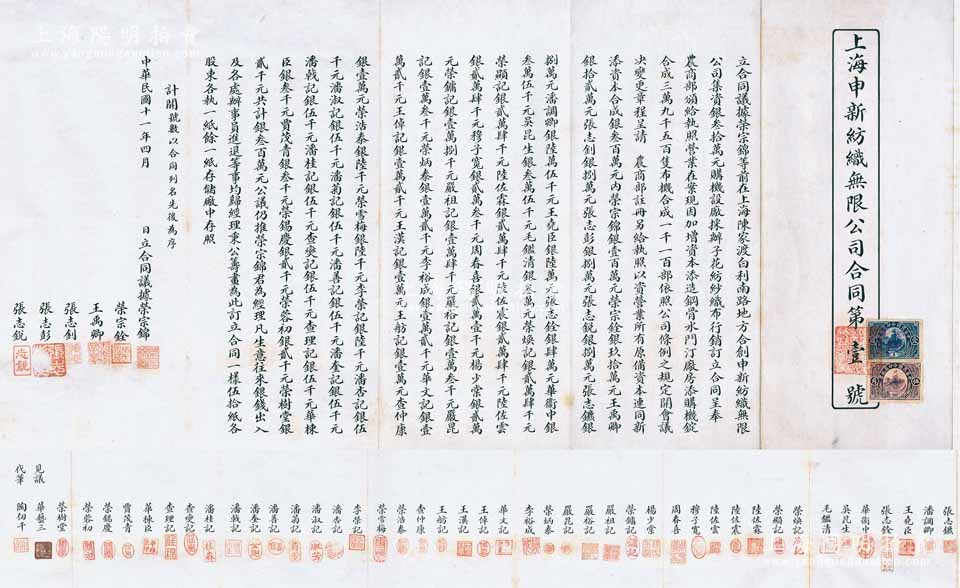 上海陽明拍賣
www.yangmingauction.com
上海申新紡織無限公司合同第壹號
立合同議據榮宗錦等前在上海陳家渡白利南路地方合創申新紡織無限
公司集資銀叁拾萬元購機設廠採辦子花紡紗織布行銷訂立合同呈奉
農商部頒給執照營業在案現因加增資本添造鋼骨水門汀廠房添購機錠
合成三萬九千五百隻布機合成一千一百部依照公司條例之規定開會議
決變更章程呈請 農商部註冊另給執照以資營業所有原備資本連同新
添資本合成銀叁百萬元內榮宗錦銀壹百萬元榮宗銓銀玖拾萬元王禹卿
銀拾貳萬元張志釗銀捌萬元張志彭銀捌萬元張志銳銀捌萬元張志鑣銀
捌萬元潘調卿銀陸萬伍千元王堯臣銀陸萬元張志銓銀肆萬元華衞中銀
叁萬伍千元吳昆生銀叁萬伍千元毛鑑清銀叁萬元榮煥記銀貳萬肆千元
榮顯記銀貳萬肆千元陸佐霖銀貳萬肆千元陸佐宸銀貳萬肆千元陸佐雲
銀貳萬肆千元穆子寬銀貳萬叁千元周春喜銀貳萬壹千元楊少棠銀貳萬
元榮鏞記銀壹萬捌千元嚴祖記銀壹萬肆千元嚴裕記銀壹萬叁千元嚴昆
記銀壹萬叁千元榮炳泰銀壹萬貳千元李裕成銀壹萬貳千元華文記銀壹
萬貳千元王倬記銀壹萬貳千元王漢記銀壹萬元王舫記銀壹萬元查仲康
銀壹萬元榮浩泰銀陸千元榮雪梅銀陸千元李榮記銀陸千元潘杏記銀伍
千元潘淑記銀伍千元潘菊記銀伍千元潘善記銀伍千元潘奎記銀伍千元
潘戟記銀伍千元潘桂記銀伍千元查燮記銀伍千元查理記銀伍千元華棟
臣銀叁千元賈茂青銀叁千元榮錫慶銀貳千元榮蓉初銀貳千元榮樹堂銀
貳千元共計銀叁百萬元公議仍推榮宗錦君為經理凡生意往來銀錢出入
及各處辦事員進退等事均歸經理秉公籌畫為此訂立合同一樣伍拾紙各
股東各執一紙餘一紙存儲廠中存照
計開號數以合同列名先後為序
中華民國十一年四月 日立合同議據榮宗錦
榮宗銓
王禹卿
張志釗
張志彭
張志銳
張志鑣
潘調卿
王堯臣
張志銓
華衞中
吳昆生
毛鑑清
榮煥記
榮顯記
陸佐霖
陸佐宸
陸佐雲
穆子寬
周春喜
楊少棠
榮鏞記
嚴祖記
嚴裕記
嚴昆記
榮炳泰
李裕成
華文記
王倬記
王漢記
王舫記
查仲康
榮浩泰
榮雪梅
李榮記
潘杏記
潘淑記
潘菊記
潘善記
潘奎記
潘戟記
潘桂記
查燮記
查理記
華棟臣
賈茂青
榮錫慶
榮蓉初
榮樹堂
見議 華藝三
代筆 陶仞千